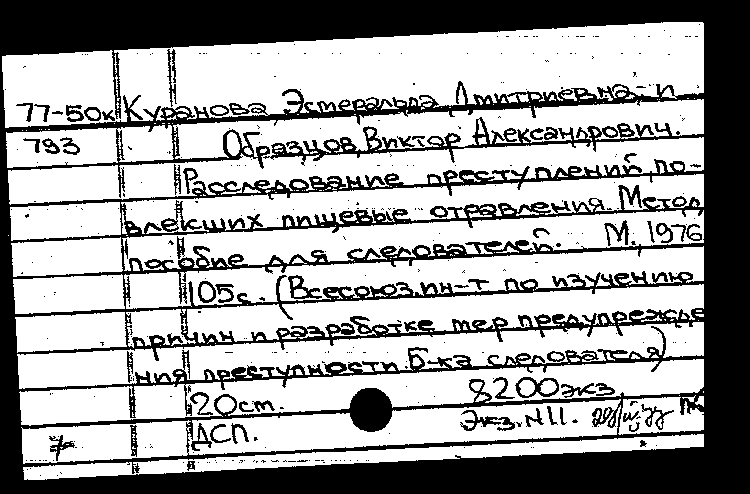 77-50к Куранова, Эсмеральда Дмитриевна, и
793 Образцов, Виктор Александрович.
Расследование преступлений, по-
влекших пищевые отравления. Метод.
пособие для следователей. М., 1976
105с. (Всесоюз. ин-т по изучению
причин и разработке мер предупрежде
ния преступности. Б-ка следователя)
20см. 8200экз
ДСП. Экз. N11.